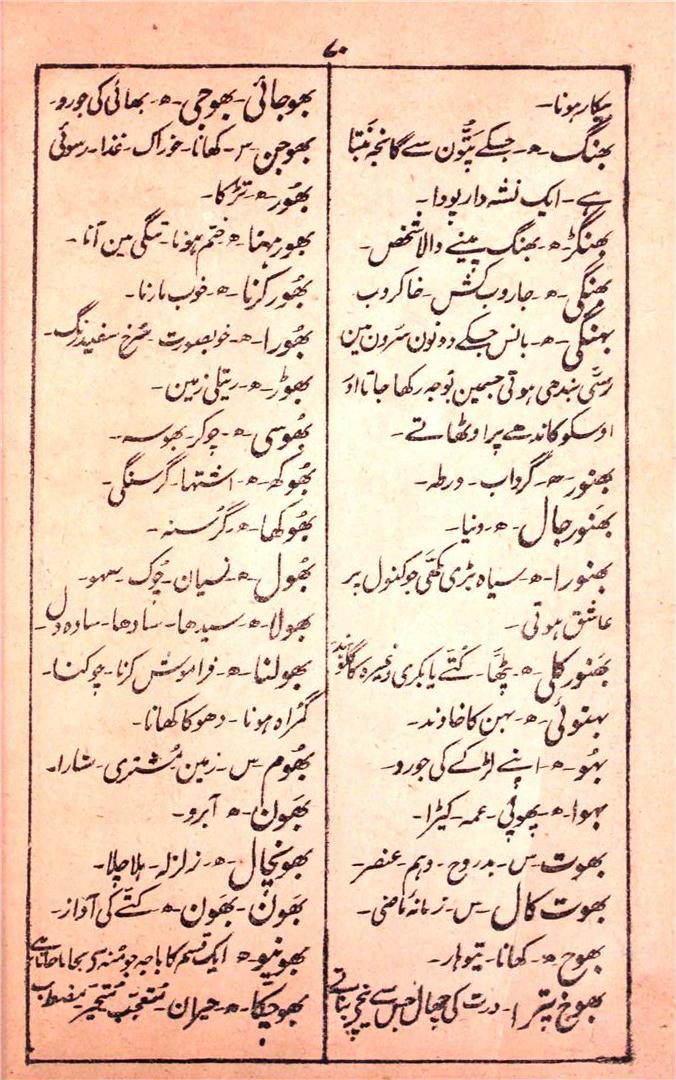 ۷۰
بیکار ہونا۔
بھنگ۔ھ۔ جسکے پتّون سے گانجہ بنتا
ہے۔ ایک نشہ دار پودا۔
بھنگڑ۔ھ۔ بھنگ پینے والا شخص۔
بھنگی۔ھ۔ جاروب کش۔ خاکروب
بہنگی۔ھ۔ بانس جسکے دونون سرون مین
رسّی بندھی ہوتی جسمین بوجہ رکھا جاتا اور
اوسکو کاندھے پر اوٹھاتے۔
بھنور۔ھ۔ گرداب۔ ورطہ۔
بھنور جال۔ھ۔ دنیا۔
بھنورا۔ھ۔ سیاہ بڑی مکھّی جو کنول پر
عاشق ہوتی۔
بھنور کلی۔ھ۔ پٹّھا۔ کُتّے یا بکری وغیرہ کا گلوبند
بہنوئی۔ھ۔ بہن کا خاوند۔
بہُو۔ھ۔ اپنے لڑکے کی جورو۔
بہوا۔ھ۔ پھوپی۔ عمہ۔ کیڑا۔
بھوت۔س۔ بدروح۔ وہم۔ عنصر۔
بھوت کال۔س۔ زمانہ ماضی۔
بھوج۔ھ۔ کھانا۔ تیوہار۔
بھوج پترا۔ درخت کی چھال جس سے نیچے بناتے
بھوجائی۔ بھوجی۔ھ۔ بھائی کی جورو۔
بھوجن۔س۔ کھانا۔ خوراک۔ غذا۔ رسوئی
بھور۔ھ۔ تڑکا۔
بھور ہونا۔ھ۔ ختم ہونا۔ تنگی مین آنا۔
بھُور کرنا۔ھ۔ خوب مارنا۔
بھُورا۔ھ۔ خوبصورت۔ سُرخ سفید رنگ۔
بھوڑ۔ھ۔ ریتلی زمین۔
بھُوسی۔ھ۔ چوکر۔ بھوسہ۔
بھُوکھ۔ھ۔ اشتہا۔ گرسنگی۔
بھُوکھا۔ھ۔ گرُسنہ۔
بھُول۔ھ۔ نسیان۔ چُوک۔ سہو۔
بھولا۔ھ۔ سیدھا۔ سادھا۔ سادہ دل۔
بھولنا۔ھ۔ فراموش کرنا۔ چوکنا۔
گمُراہ ہونا۔ دھوکا کھانا۔
بھُوم۔س۔ زمین۔ مُشتری۔ ستارا۔
بھَون۔ھ۔ آبرو۔
بھونچال۔ھ۔ زلزلہ۔ ہلاچلا۔
بھَون۔ بھَون۔ھ۔ کتّے کی آواز۔
بھونپو۔ھ۔ ایک قسم کا باجہ جو منہ سے بجایا جاتا ہے
بھوچکا۔ھ۔ حیران۔ مُتعجّب۔ مُتحیّر۔ مضطرب